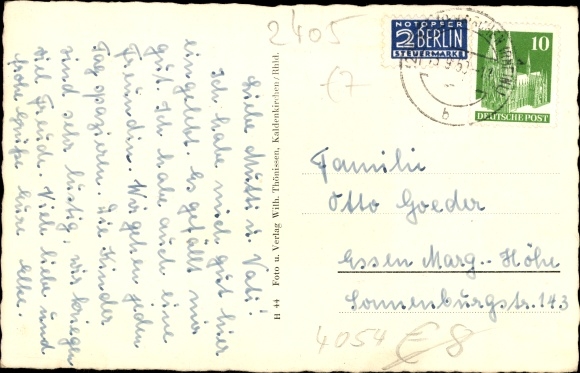 Liebe Mutti u. Vati!
Ich habe mich gut hier
eingelebt. Es gefällt mir
gut. Ich habe auch eine
Freundin. Wir gehen jeden
Tag spazieren. Die Kinder
sind sehr lustig, wir kriegen
viel Freud. Viele liebe und
frohe Grüße eure Elke.
H 44 Foto u. Verlag Wilh. Thönissen, Kaldenkirchen/Rhld.
2405
(7
NOTOPFER
2 BERLIN
STEUERMARKE
10
DEUTSCHE POST
b
Familie
Otto Goeder
Essen Marg.-Höhe
Sonnenburgstr. 143
4054 € 8